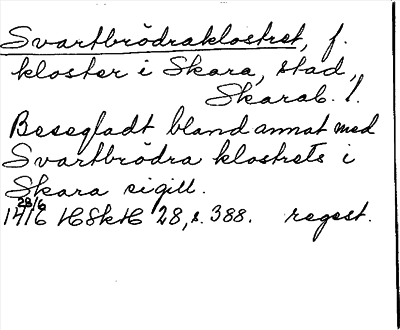 Svartbrödraklostret, f.
kloster i Skara, stad,
Skarab. l.
Besegladt bland annat med
Svartbrödra klostrets i
Skara sigill.
28/6
1416 HSkH 28, s. 388. regest.